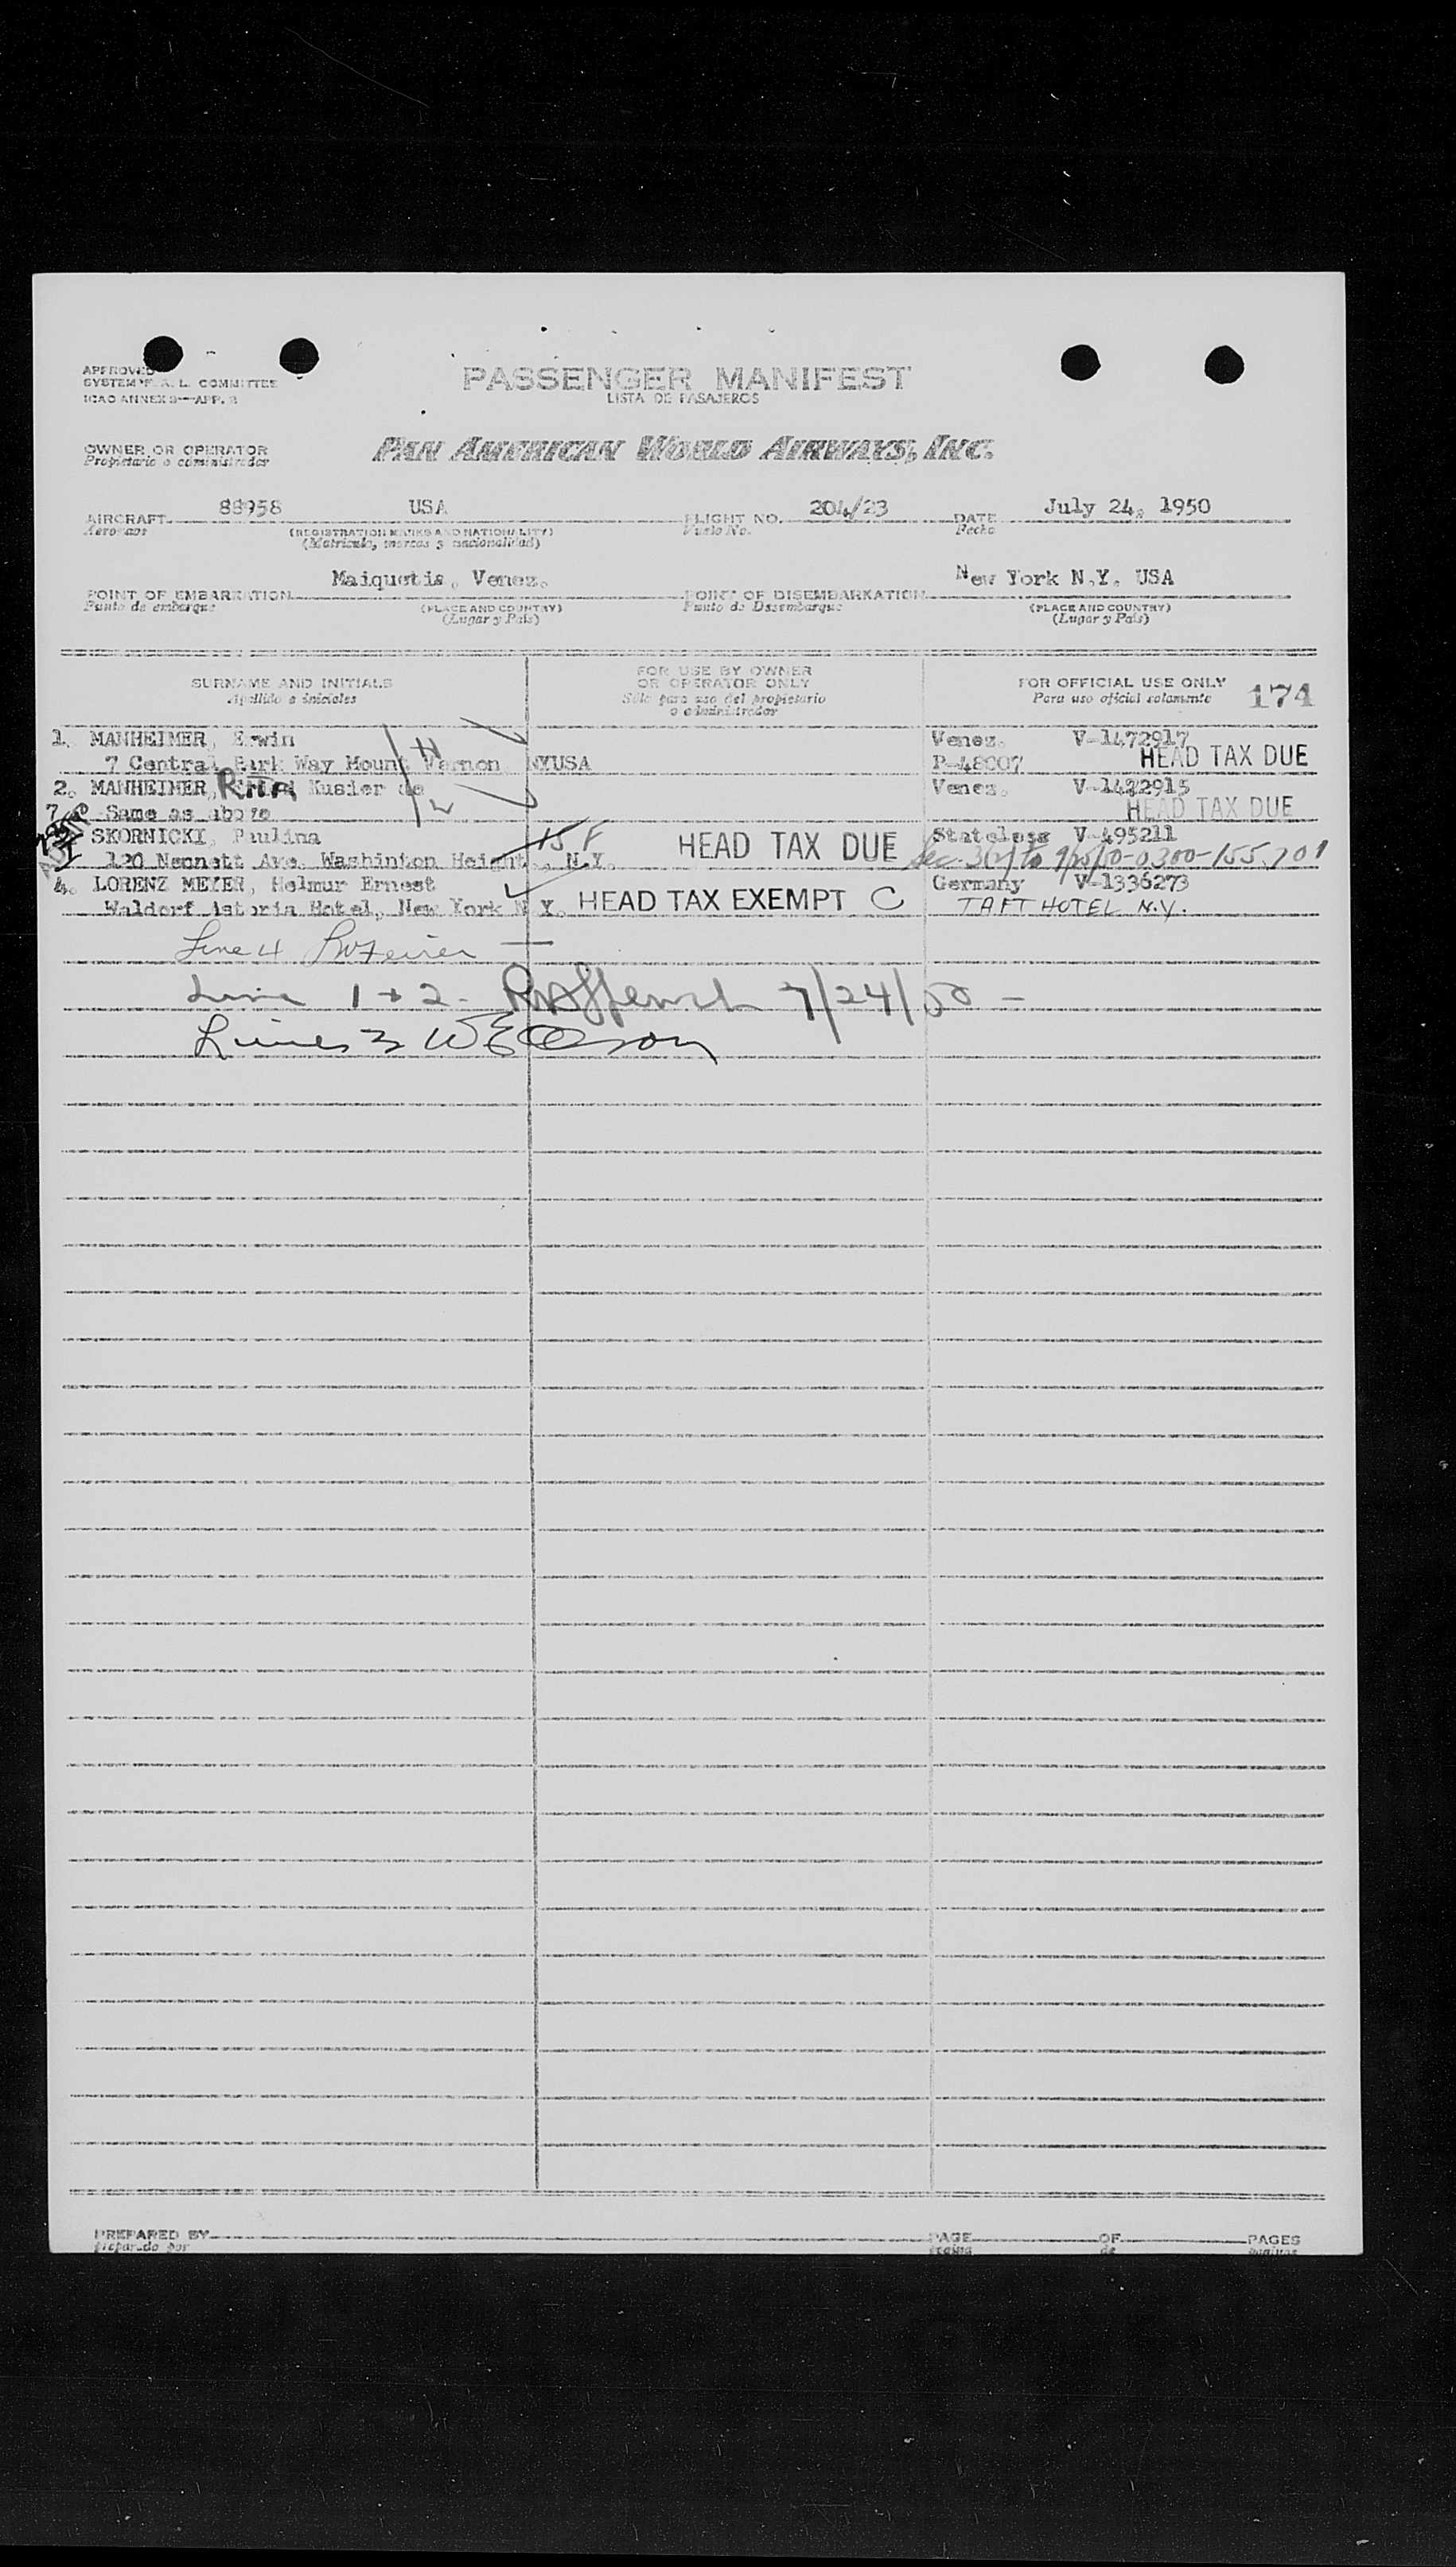 APPROVED
SYSTEM F. A. L. COMMITTEE
ICAO ANNEX 9—APP. 2
PASSENGER MANIFEST
LISTA DE PASAJEROS
OWNER OR OPERATOR
Propietario o administrador
PAN AMERICAN WORLD AIRWAYS, INC.
AIRCRAFT 88958 USA FLIGHT NO. 204/23 DATE July 24, 1950
Aeronave (REGISTRATION MARKS AND NATIONALITY) Vuelo No. Fecha
(Matricula, marcas y nacionalidad)
POINT OF EMBARKATION Maiquetia, Venez. POINT OF DISEMBARKATION New York N.Y. USA
Punto de embarque (PLACE AND COUNTRY) Punto de Desembarque (PLACE AND COUNTRY)
(Lugar y País) (Lugar y País)
SURNAME AND INITIALS
Apellido e iniciales
FOR USE BY OWNER
OR OPERATOR ONLY
Sólo para uso del propietario
o administrador
FOR OFFICIAL USE ONLY
Para uso oficial solamente
174
1. MANHEIMER, Erwin Venez. V-1472917
7 Central Park Way Mount Vernon NYUSA P-48007 HEAD TAX DUE
2. MANHEIMER, RITA Kusier de Venez. V-1422915
Same as above HEAD TAX DUE
SKORNICKI, Paulina 15 F HEAD TAX DUE Stateless V-495211
120 Nennett Ave. Washinton Height, N.Y. Sec. to 0300-155.701
4. LORENZ MEYER, Helmur Ernest Germany V-1336273
Waldorf Astoria Hotel, New York N Y. HEAD TAX EXEMPT C TAFT HOTEL N.Y.
Line 4
Line 1 + 2 - 7/24/50 -
Lines 3
PREPARED BY PAGE OF PAGES
Preparado por página de páginas